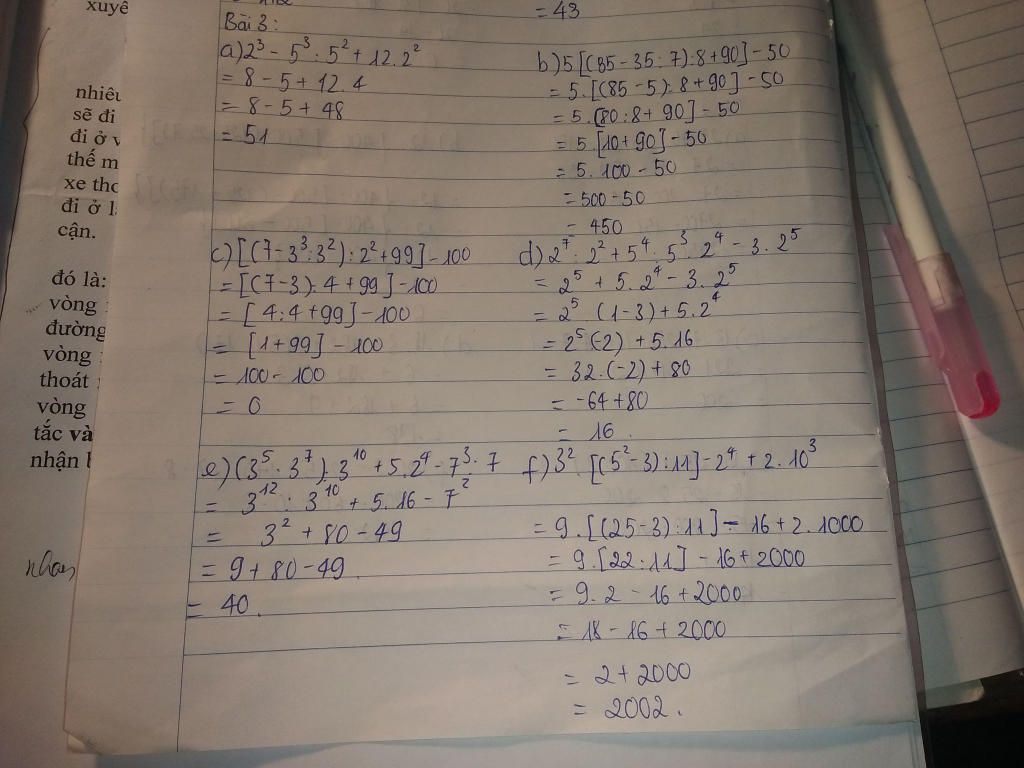 xuyê
nhiêu
sẽ đi
đi ở v
thế m
xe thc
đi ở l
cận.
đó là:
vòng
đường
vòng
thoát
vòng
tắc và
nhận b
nhan
= 43
Bài 3:
a) 2³ - 5³ : 5² + 12.2²
= 8 - 5 + 12.4
= 8 - 5 + 48
= 51
b) 5[(85 - 35 : 7) : 8 + 90] - 50
= 5.[(85 - 5) : 8 + 90] - 50
= 5.[80 : 8 + 90] - 50
= 5.[10 + 90] - 50
= 5.100 - 50
= 500 - 50
= 450
c) [(7 - 3³ : 3²) : 2² + 99] - 100
= [(7 - 3) : 4 + 99] - 100
= [4 : 4 + 99] - 100
= [1 + 99] - 100
= 100 - 100
= 0
d) 2⁷ : 2² + 5⁴ : 5³ . 2⁴ - 3 . 2⁵
= 2⁵ + 5.2⁴ - 3.2⁵
= 2⁵ (1 - 3) + 5.2⁴
= 2⁵ (-2) + 5.16
= 32.(-2) + 80
= -64 + 80
= 16.
e) (3⁵ . 3⁷) : 3¹⁰ + 5.2⁴ - 7³ : 7
= 3¹² : 3¹⁰ + 5.16 - 7²
= 3² + 80 - 49
= 9 + 80 - 49
= 40.
f) 3² . [(5² - 3) : 11] - 2⁴ + 2.10³
= 9.[(25 - 3) : 11] - 16 + 2.1000
= 9.[22 : 11] - 16 + 2000
= 9.2 - 16 + 2000
= 18 - 16 + 2000
= 2 + 2000
= 2002.